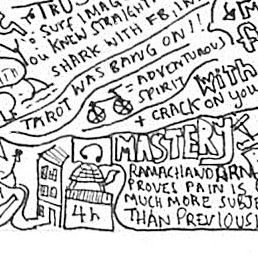 TRUS
SURF IMAG
YOU KNEW STRAIGHT
SHARK WITH F.B. IN
TAROT WAS BANG ON!!
= ADVENTUROUS
SPIRIT
With
+ CRACK ON YOU
MASTERY
RAMACHANDRAN
PROVES PAIN IS
MUCH MORE SUBJE
THAN PREVIOUSL
4h